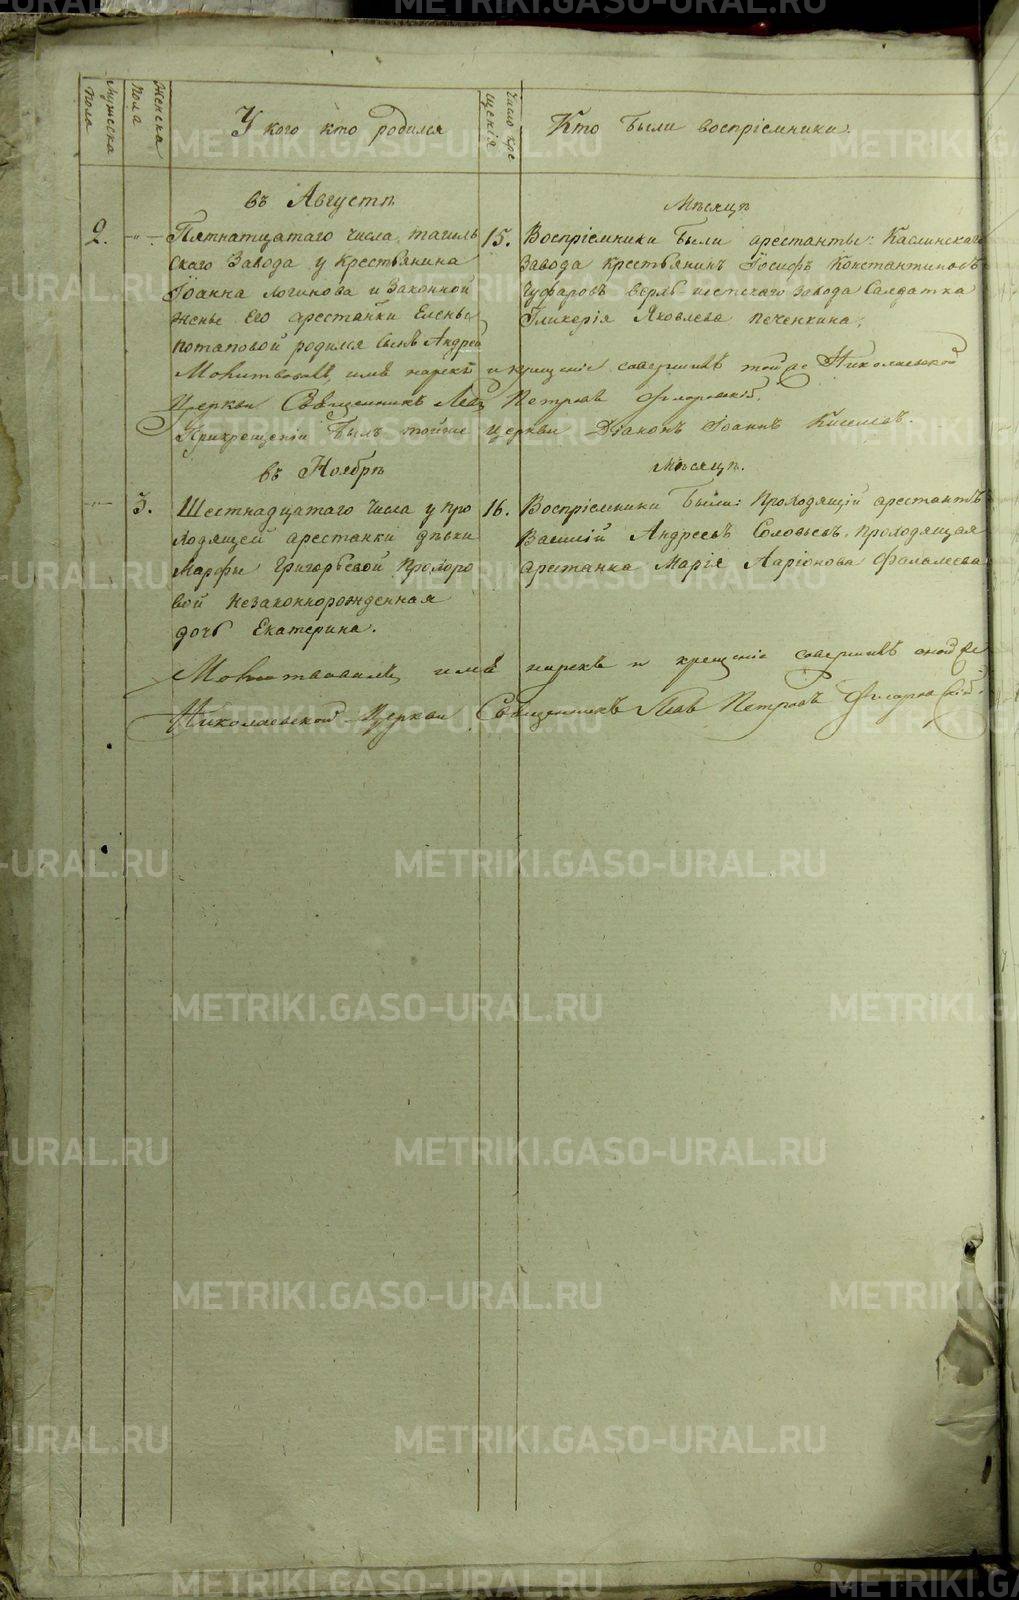 Мужеска пола
Женска пола
У кого кто родился
Число крещенія
Кто были воспріемники.
въ Августѣ
Мѣсяцѣ
2. —"—. Пятнатцатаго числа тагиль 15. Воспріемники были арестанты: Каслинскаго
скаго Завода у крестьянина завода крестьянинъ Іосифъ Константиновъ
Іоанна Логинова и законной Чуфаровъ верхъ завода Салдатка
женѣ его арестанки Елены Гликерія Яковлева Печенкина,
Потаповой родился сынъ Андрей
Молитвовалъ, имѣ нарекъ и крещеніе совершилъ той же Николаевской
Церкви Священникъ Левъ Петровъ Флоровскій.
Прикрещеніи былъ тойже церкви Діаконъ Іоаннъ Киселевъ.
въ Ноябрѣ
мѣсяцѣ.
—"— 3. Шестнадцатаго числа у про 16. Воспріемники были: Проходящій арестантъ
ходящей арестанки дѣвки Василій Андреевъ Соловьевъ, проходящая
Марфы Григорьевой Прохоро арестанка Марія Ларіонова Фалалеева
вой незаконнорожденная
дочь Екатерина.
Молитвовалъ, имѣ нарекъ и крещеніе совершилъ оной же
Николаевской Церкви Священникъ Левъ Петровъ Флоровскій.
METRIKI.GASO-URAL.RU